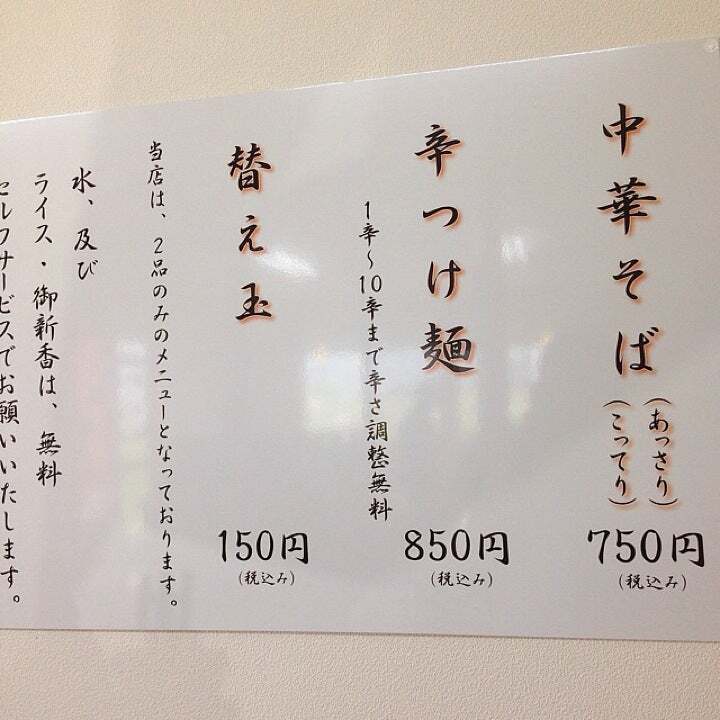 中華そば
(あっさり)
(こってり)
750円
(税込み)
辛つけ麺
1辛～10辛まで辛さ調整無料
850円
(税込み)
替え玉
150円
(税込み)
当店は、2品のみのメニューとなっております。
水、及び
ライス・御新香は、無料
セルフサービスでお願いいたします。